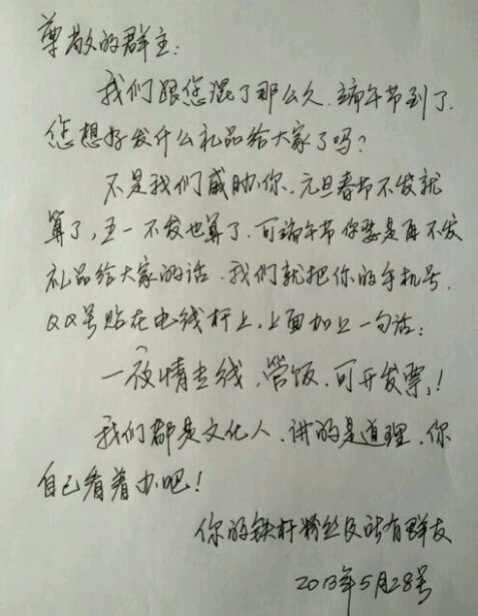 尊敬的群主:
我们跟您混了那么久.端午节到了.
您想好发什么礼品给大家了吗?
不是我们威胁你.元旦春节不发就
算了,五一不发也算了.可端午节你要是再不发
礼品给大家的话.我们就把你的手机号.
QQ号贴在电线杆上.上面加上一句话:
一夜情专线.管饭.可开发票.!
我们都是文化人.讲的是道理.你
自己看着办吧!
你的铁杆粉丝及所有群友
2013年5月28号